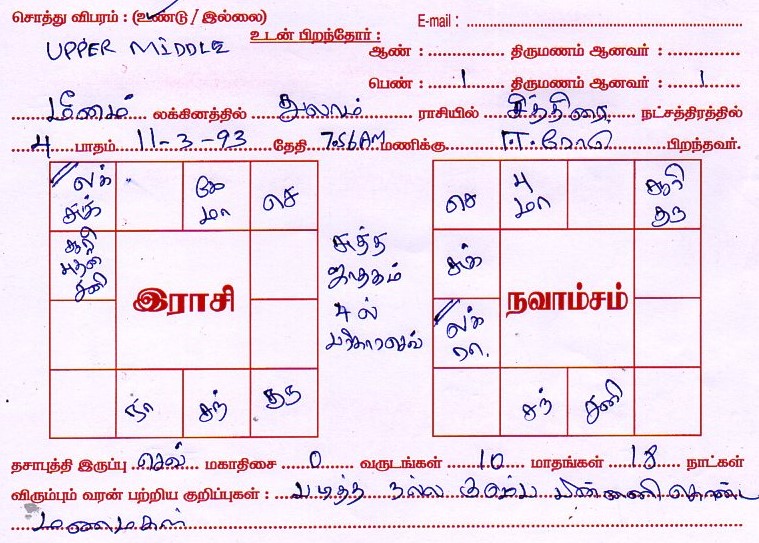 சொத்து விபரம் : (உண்டு / இல்லை) E-mail :
UPPER MIDDLE உடன் பிறந்தோர் : ஆண் : திருமணம் ஆனவர் :
பெண் : 1 திருமணம் ஆனவர் : 1
மீனம் லக்கினத்தில் துலாம் ராசியில் சித்திரை நட்சத்திரத்தில்
4 பாதம் 11-3-93 தேதி 7.56AM மணிக்கு பிறந்தவர்.
லக் கே செ செ பு சூரி
சுக் மா மா குரு
சூரி சுத்த சுக்
புதன் ஜாதகம்
சனி இராசி 4 ல் நவாம்சம் லக்
பரிகாரசெவ் ரா.
ரா சந் குரு சந் சனி
தசாபுத்தி இருப்பு செவ் மகாதிசை 0 வருடங்கள் 10 மாதங்கள் 18 நாட்கள்
விரும்பும் வரன் பற்றிய குறிப்புகள் : படித்த நல்ல குடும்ப பின்னணி கொண்ட
மணமகள்